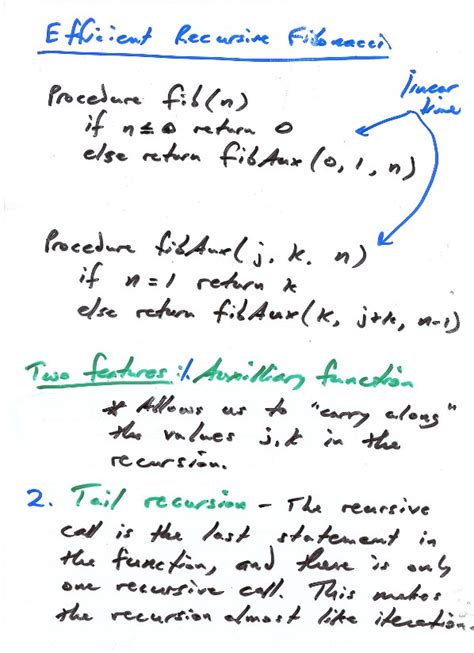 Efficient Recursive Fibonacci
linear
time
Procedure fib(n)
if n ≤ 0 return 0
else return fibAux(0, 1, n)
Procedure fibAux(j, k, n)
if n = 1 return k
else return fibAux(k, j+k, n-1)
Two features: 1. Auxilliary function
* Allows us to "carry along"
the values j, k in the
recursion.
2. Tail recursion - The recursive
call is the last statement in
the function, and there is only
one recursive call. This makes
the recursion almost like iteration.